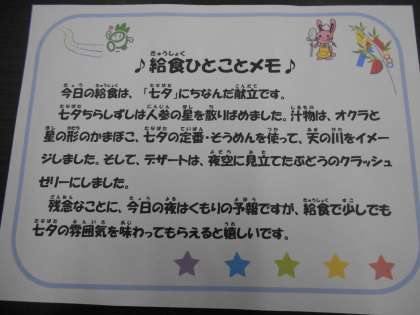 ♪給食ひとことメモ♪
今日の給食は、「七夕」にちなんだ献立です。
七夕ちらしずしは人参の星を散りばめました。汁物は、オクラと
星の形のかまぼこ、七夕の定番・そうめんを使って、天の川をイメー
ジしました。そして、デザートは、夜空に見立てたぶどうのクラッシュ
ゼリーにしました。
残念なことに、今日の夜はくもりの予報ですが、給食で少しでも
七夕の雰囲気を味わってもらえると嬉しいです。